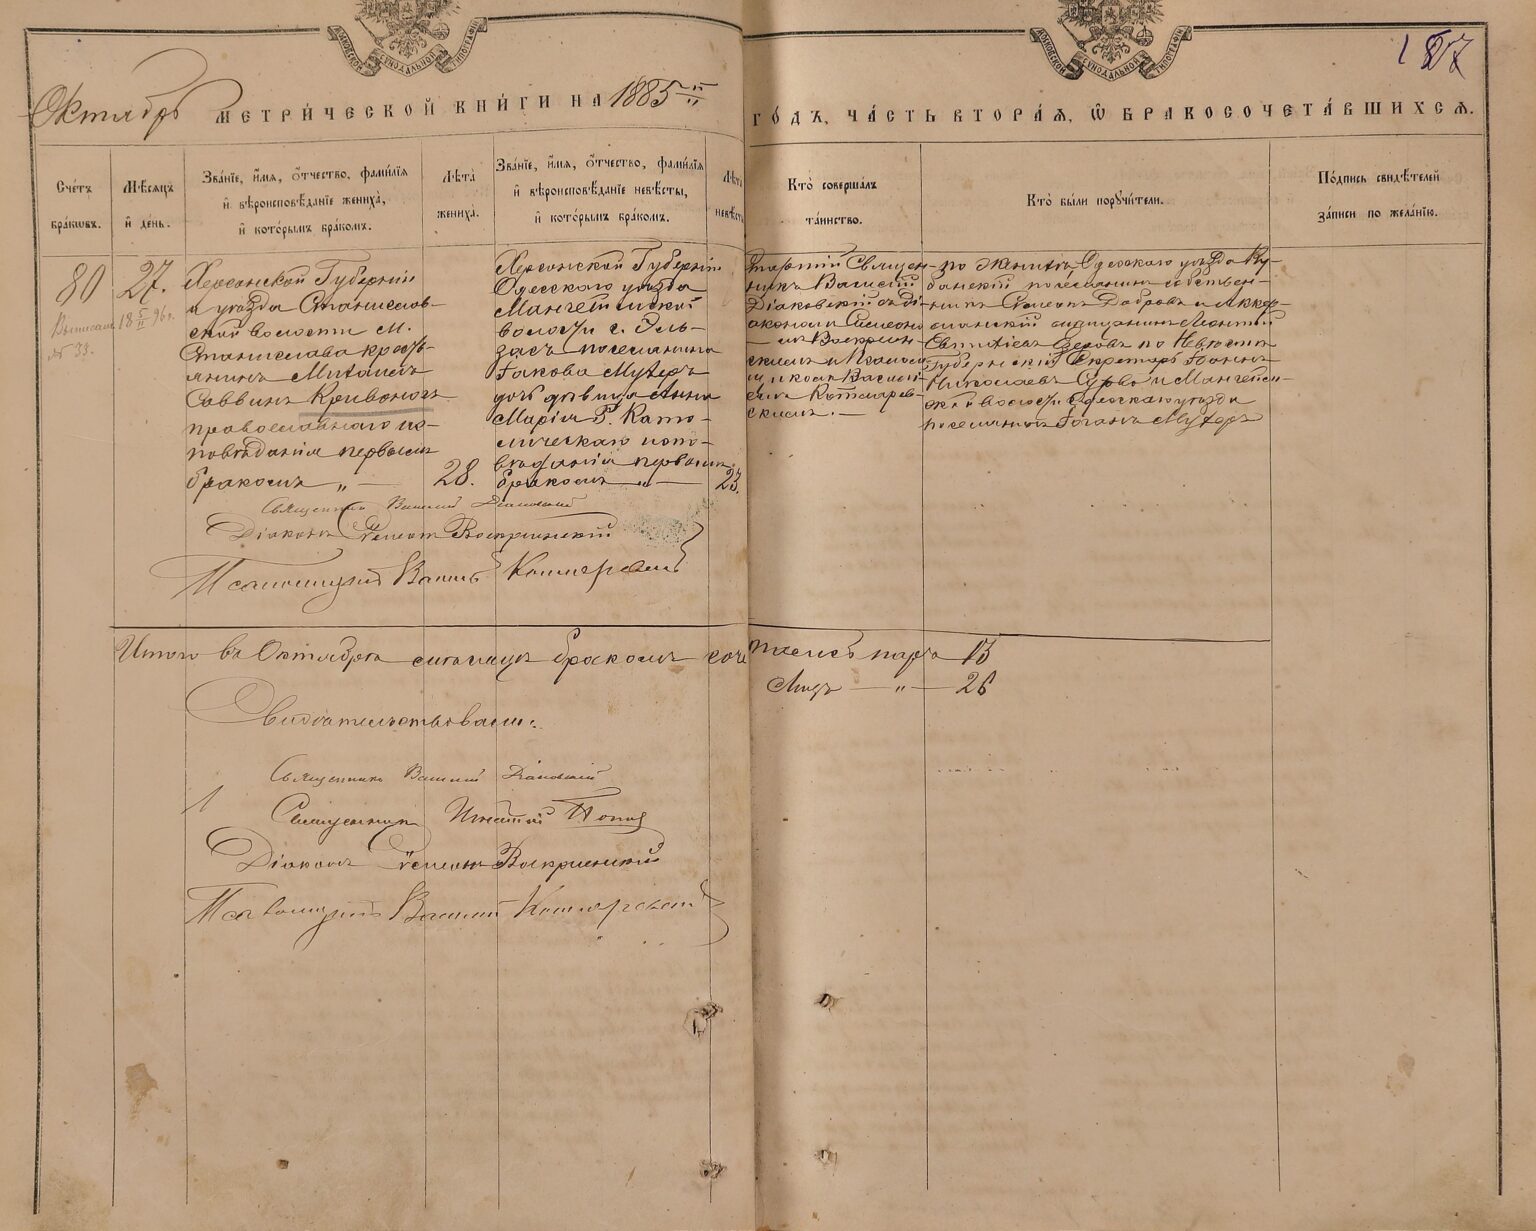 МОСКОВСКОЙ СѴНОДАЛЬНОЙ ТИПОГРАФІИ
МОСКОВСКОЙ СѴНОДАЛЬНОЙ ТИПОГРАФІИ
187
Октябрь МЕТРИ́ЧЕСКОЙ КНИ́ГИ НА 1885 ГО́ДЪ, ЧА́СТЬ ВТОРА́Я, Ѽ БРАКОСОЧЕТА́ВШИХСЯ.
Сче́тъ бра́ковъ.
Мѣ́сяцъ и҆ де́нь.
Зва́нїе, и҆́мя, ѻ҆́тчество, фами́лїя и҆ вѣроисповѣ́данїе жениха̀, и҆ кото́рымъ бра́комъ.
Лѣ́та жениха̀.
Зва́нїе, и҆́мя, ѻ҆́тчество, фами́лїя и҆ вѣроисповѣ́данїе невѣ́сты, и҆ кото́рымъ бра́комъ.
Лѣ́та невѣ́сты
Кто̀ соверша́лъ та́инство.
Кто̀ бы́ли поручи́тели.
По́дпись свидѣ́телей за́писи по жела́нїю.
80
27.
Выписалъ 18 5/II 96 г.
№ 33.
Херсонской Губерніи
и уѣзда Станислав-
ской волости М.
Станислава кресть-
янинъ Михаилъ
Саввинъ Кривоногъ
православнаго ис-
повѣданія первымъ
бракомъ „ —
28.
Херсонской Губерніи
Одесскаго уѣзда
Мангеймской
волости с. Эль-
засъ поселянина
Іакова Мутеръ
дочь дѣвица Анна
Марія Р. Като-
лическаго испо-
вѣданія первымъ
бракомъ „ —
23.
Старшій Священ-
никъ Василій
Діаковскій съ Ді-
акономъ Симеоно-
мъ Воскресен-
скимъ и Псаломщ-
икомъ Василі-
емъ Котляров-
скимъ. —
по Женихѣ Одесскаго уѣзда Ку-
банскій поселянинъ собствен-
никъ Симеонъ Добровъ и Аккер-
манскій мѣщанинъ Леонтій
Евтихіевъ по Невѣстѣ
Губернскій Секретарь Іоаннъ
Николаевъ и Мангейм-
ской волости Одесскаго уѣзда
поселянинъ Іоганъ Мутеръ
Священникъ Василій Діаковскій
Діаконъ Симеонъ Воскресенскій
Псаломщикъ Василій Котляровскій
Итого въ Октябрѣ мѣсяцѣ бракомъ сочеталось паръ 13
Лицъ — „ — 26
Свидѣтельствовали:
Священникъ Василій Діаковскій
Священникъ Игнатій Поповъ
Діаконъ Симеонъ Воскресенскій
Псаломщикъ Василій Котляровскій